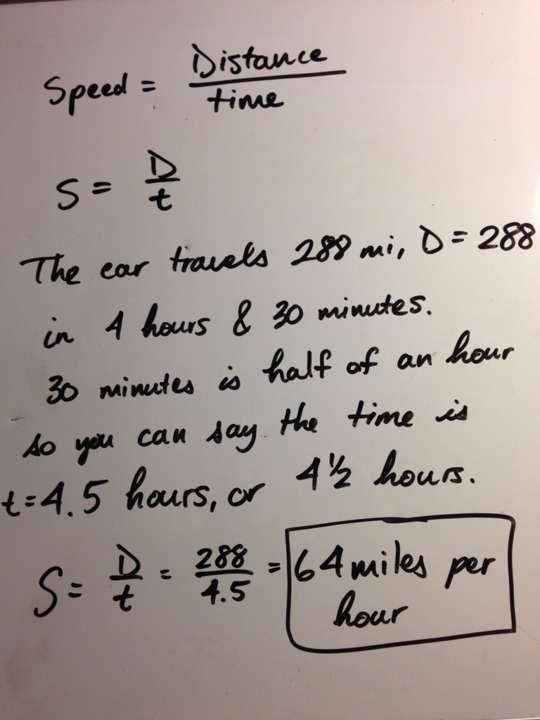 Speed = Distance / time
S = D / t
The car travels 288 mi, D = 288
in 4 hours & 30 minutes.
30 minutes is half of an hour
so you can say the time is
t = 4.5 hours, or 4 1/2 hours.
S = D / t = 288 / 4.5 = 64 miles per
hour